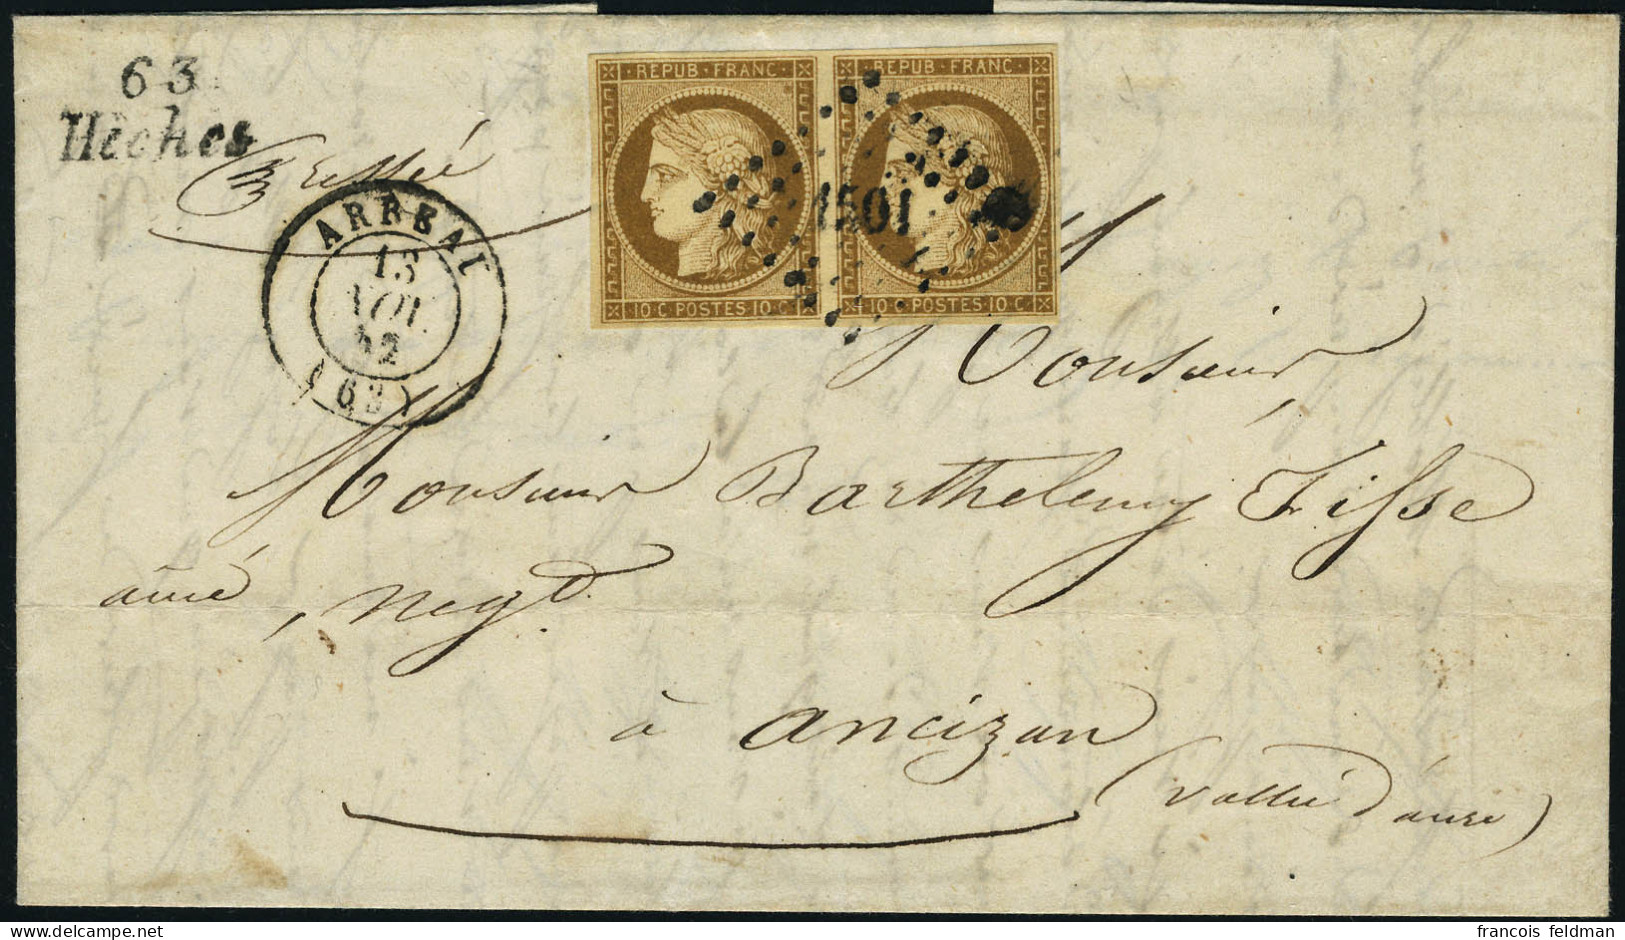 63
Hèches
ARREAU
13
NOV.
52
(63)
REPUB·FRANC·
10 C·POSTES·10 C·
REPUB·FRANC·
10 C·POSTES·10 C·
1501
Monsieur,
Monsieur Barthelemy Fisse
ainé, negt.
à ancizan
(vallée d'aure)
francois feldman